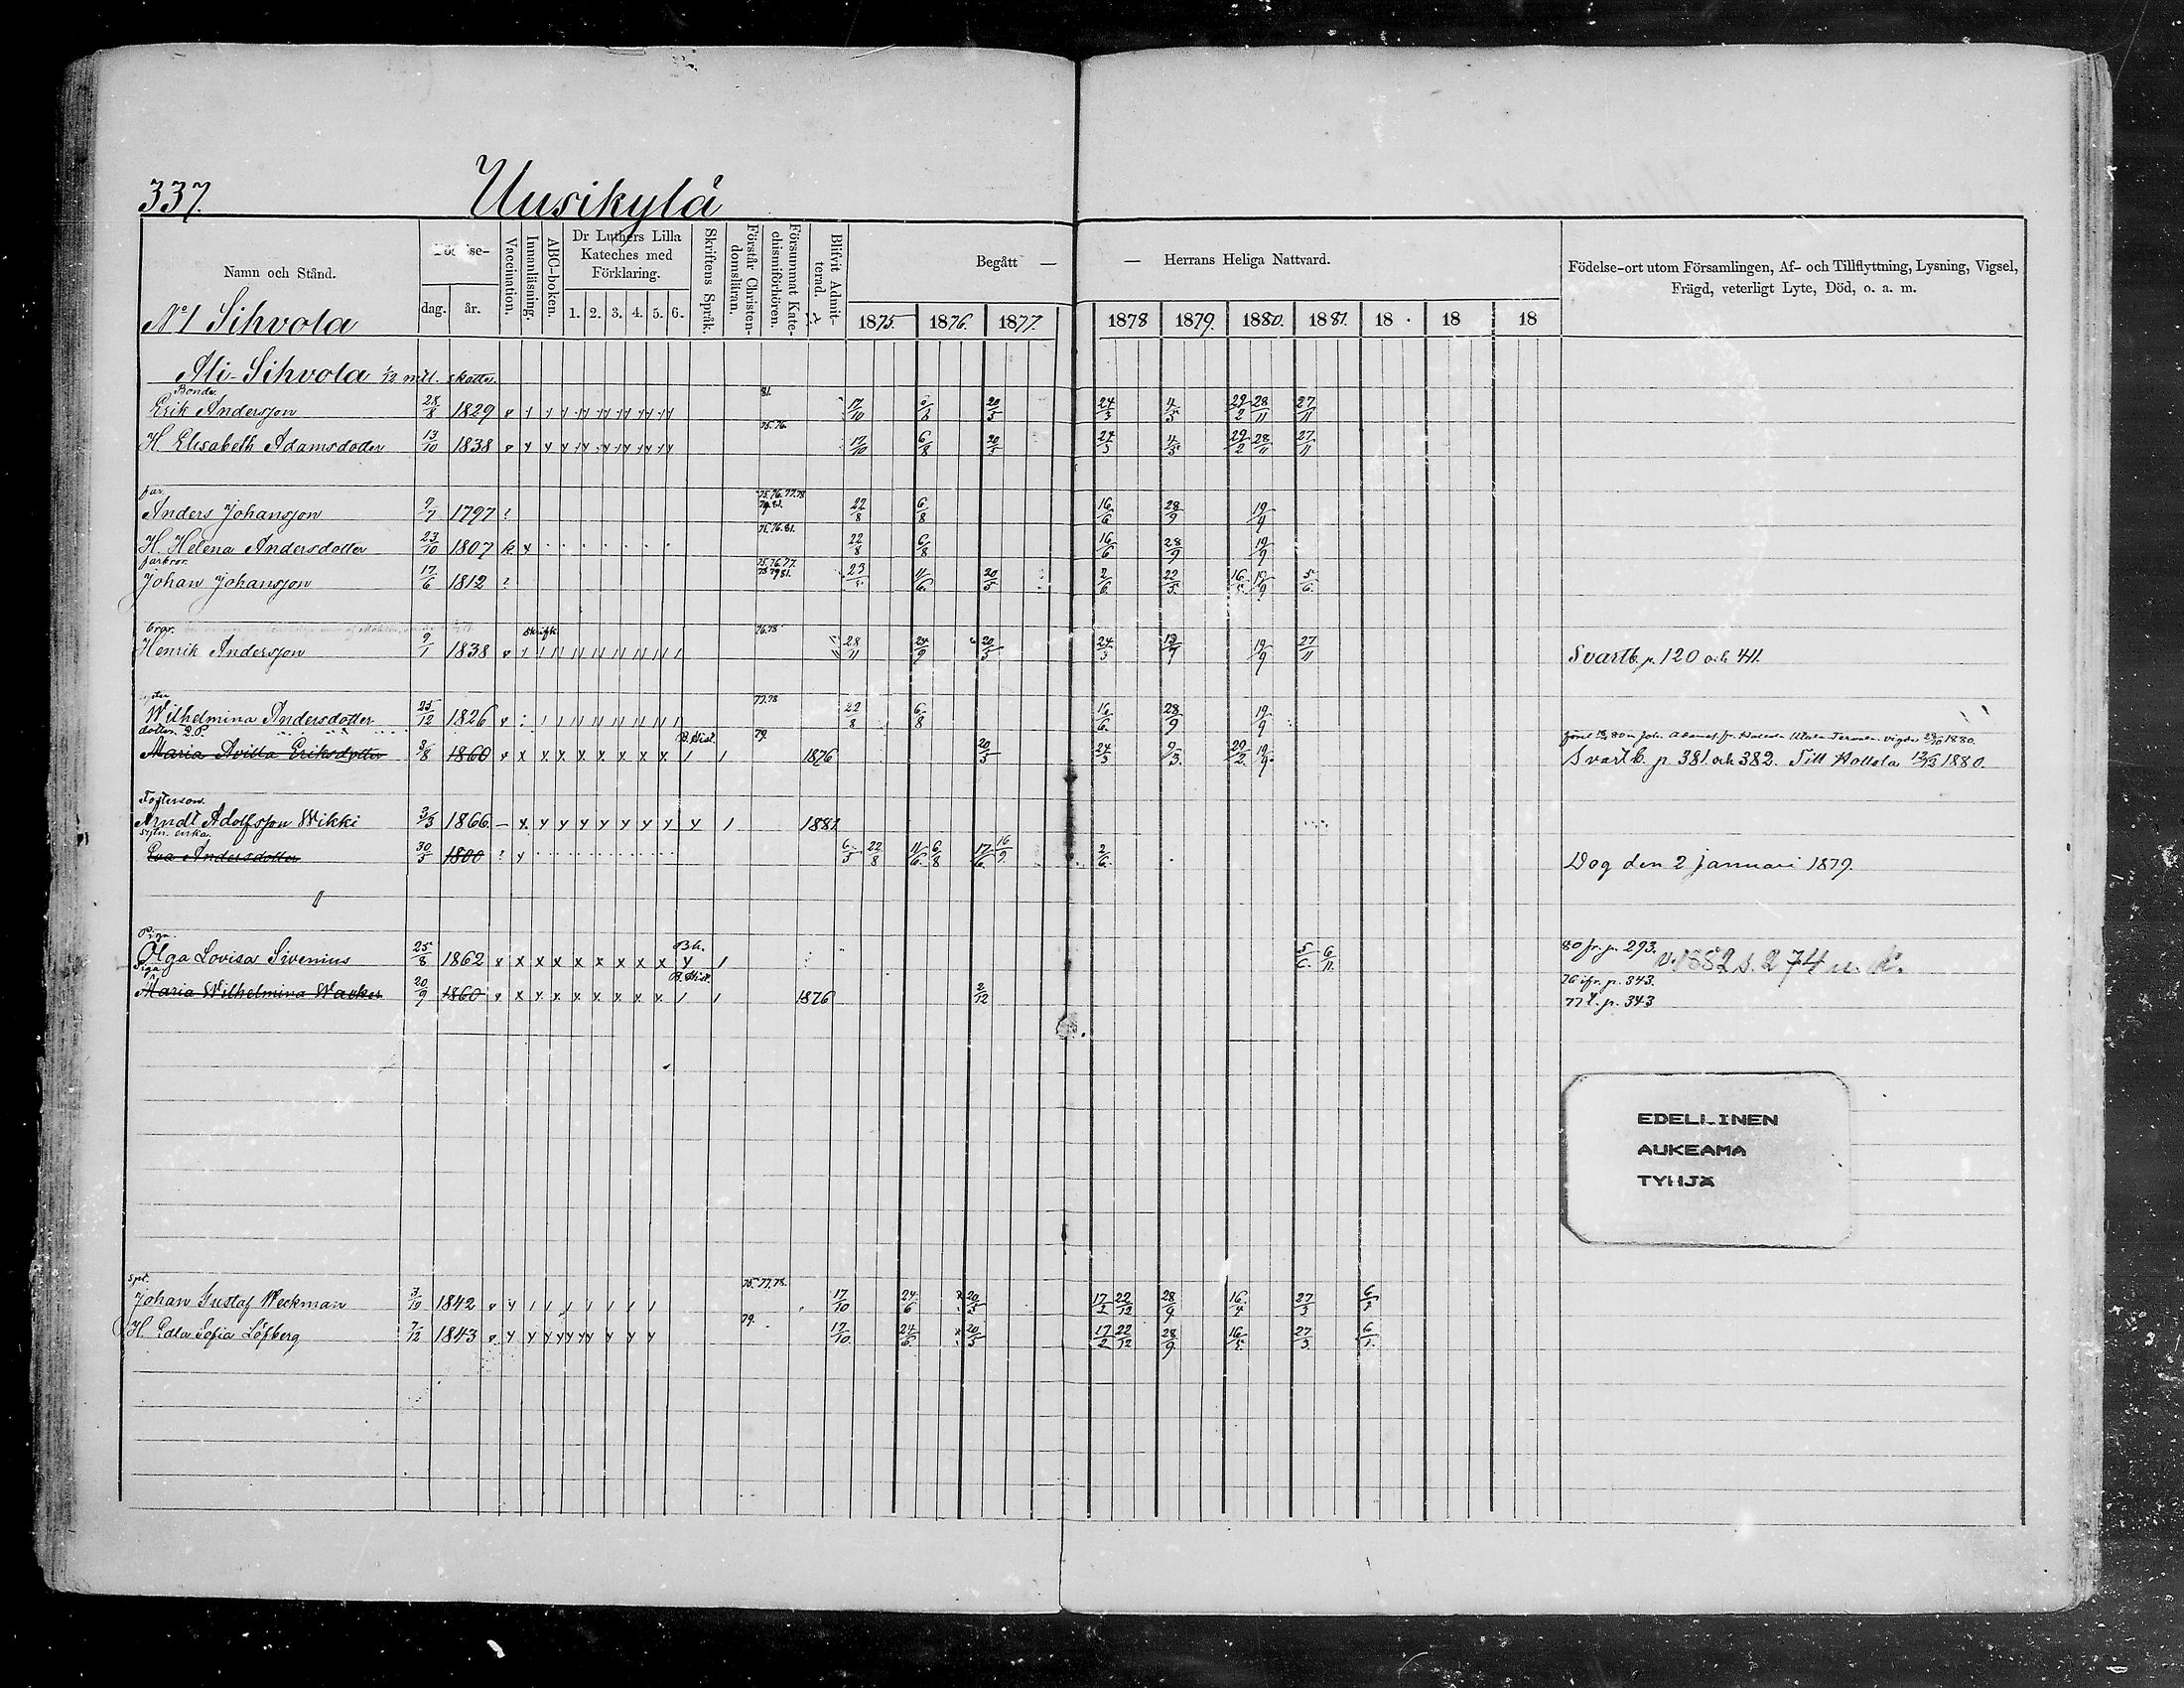 337.
Uusikylä
Namn och Stånd.
Födelse-
dag. år.
Vaccination.
Innanläsning.
ABC-boken.
Dr Luthers Lilla Kateches med Förklaring.
1. 2. 3. 4. 5. 6.
Skriftens Språk.
Förstår Christendomsläran.
Försummat Katechismiförhören.
Blifvit Admitterad.
Begått —
— Herrans Heliga Nattvard.
1875. 1876. 1877. 1878 1879. 1880. 1881. 18 18 18
Födelse-ort utom Församlingen, Af- och Tillflyttning, Lysning, Vigsel,
Frägd, veterligt Lyte, Död, o. a. m.
No 1 Sihvola
Ali-Sihvola 1/12 mtl. skatte.
Bonde.
Erik Andersson 28/8 1829 81. 17/10 6/8 20/5 24/3 4/5 29/2 28/11 27/11
H. Elisabeth Adamsdotter 13/10 1838 75.76. 17/10 6/8 20/5 24/3 4/5 29/2 28/11 27/11
far.
Anders Johansson 7/7 1797 ? 75.76.77.78 79.81. 22/8 6/8 16/6 28/9 19/9
H. Helena Andersdotter 23/10 1807 k 75.76.81. 22/8 6/8 16/6 28/9 19/9
farbror.
Johan Johansson 17/6 1812 ? 75.76.77. 78 79 81. 23/5 11/6 20/5 2/6 22/5 16/5 19/9 5/6
bror.
Henrik Andersson 9/1 1838 76.78 28/11 24/9 20/5 24/3 19/9 27/11 Svartb. p. 120 och 441.
syster
Wilhelmina Andersdotter 25/12 1826 77.78 22/8 6/8 16/6 28/9 19/9
dotter
Maria Avilla Eriksdotter 3/8 1860 B. Hist. 79. 1876 20/5 24/3 9/3 29/2 19/9
vigde 1880.
Svartb. p. 381 och 382. Till Hollola 1880.
Fosterson.
Arndt Adolfsson Wikki 3/3 1866. 1881
sytn. enka.
Eva Andersdotter 30/5 1800 ? 6/5 22/8 11/6 6/8 17/6 16/9 2/6 Dog den 2 januari 1879.
Piga.
Olga Lovisa Sivenius 25/8 1862 B.h. 5/6 6/11 80 fr. p. 293. v. 1882 s. 274 u. k.
Piga
Maria Wilhelmina Wacker 20/9 1860 B. Hist. 1876 2/12 76 ifr. p. 343.
77 t. p. 343
EDELLINEN
AUKEAMA
TYHJÄ
Johan Gustaf Weckman 3/10 1842 75.77.78. 17/10 24/6 20/5 17/2 22/12 28/9 16/4 27/3
H. Edla Sofia Löfberg 7/12 1843 79. 17/10 24/6 20/5 17/2 22/12 28/9 27/3